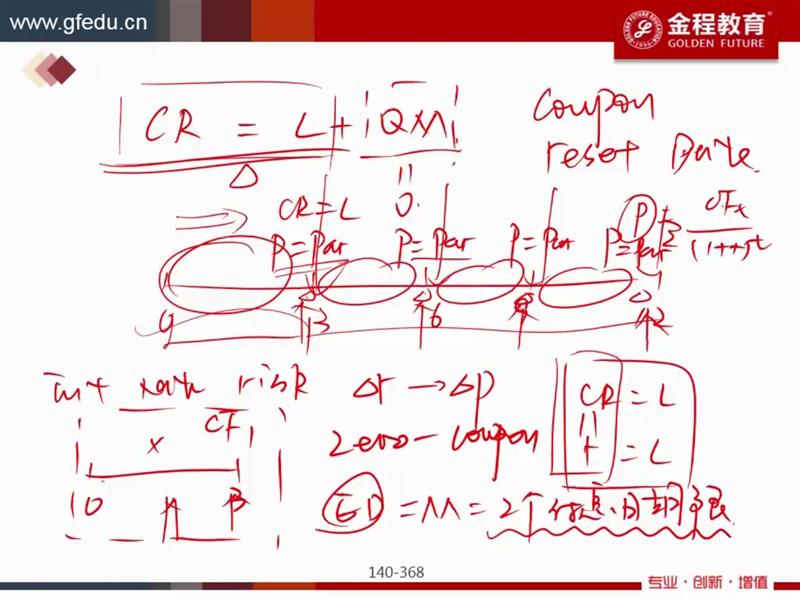 www.gfedu.cn
金程教育
GOLDEN FUTURE
CR = L + QM
Coupon
reset Date
CR = L 0
P = Par P = Par P = Par P = Par
0 3 6 9 12
Int rate risk Δr → Δp
CF
zero-coupon
CR = L
r = L
ED = M = 2个付息日期
140-368
专业·创新·增值